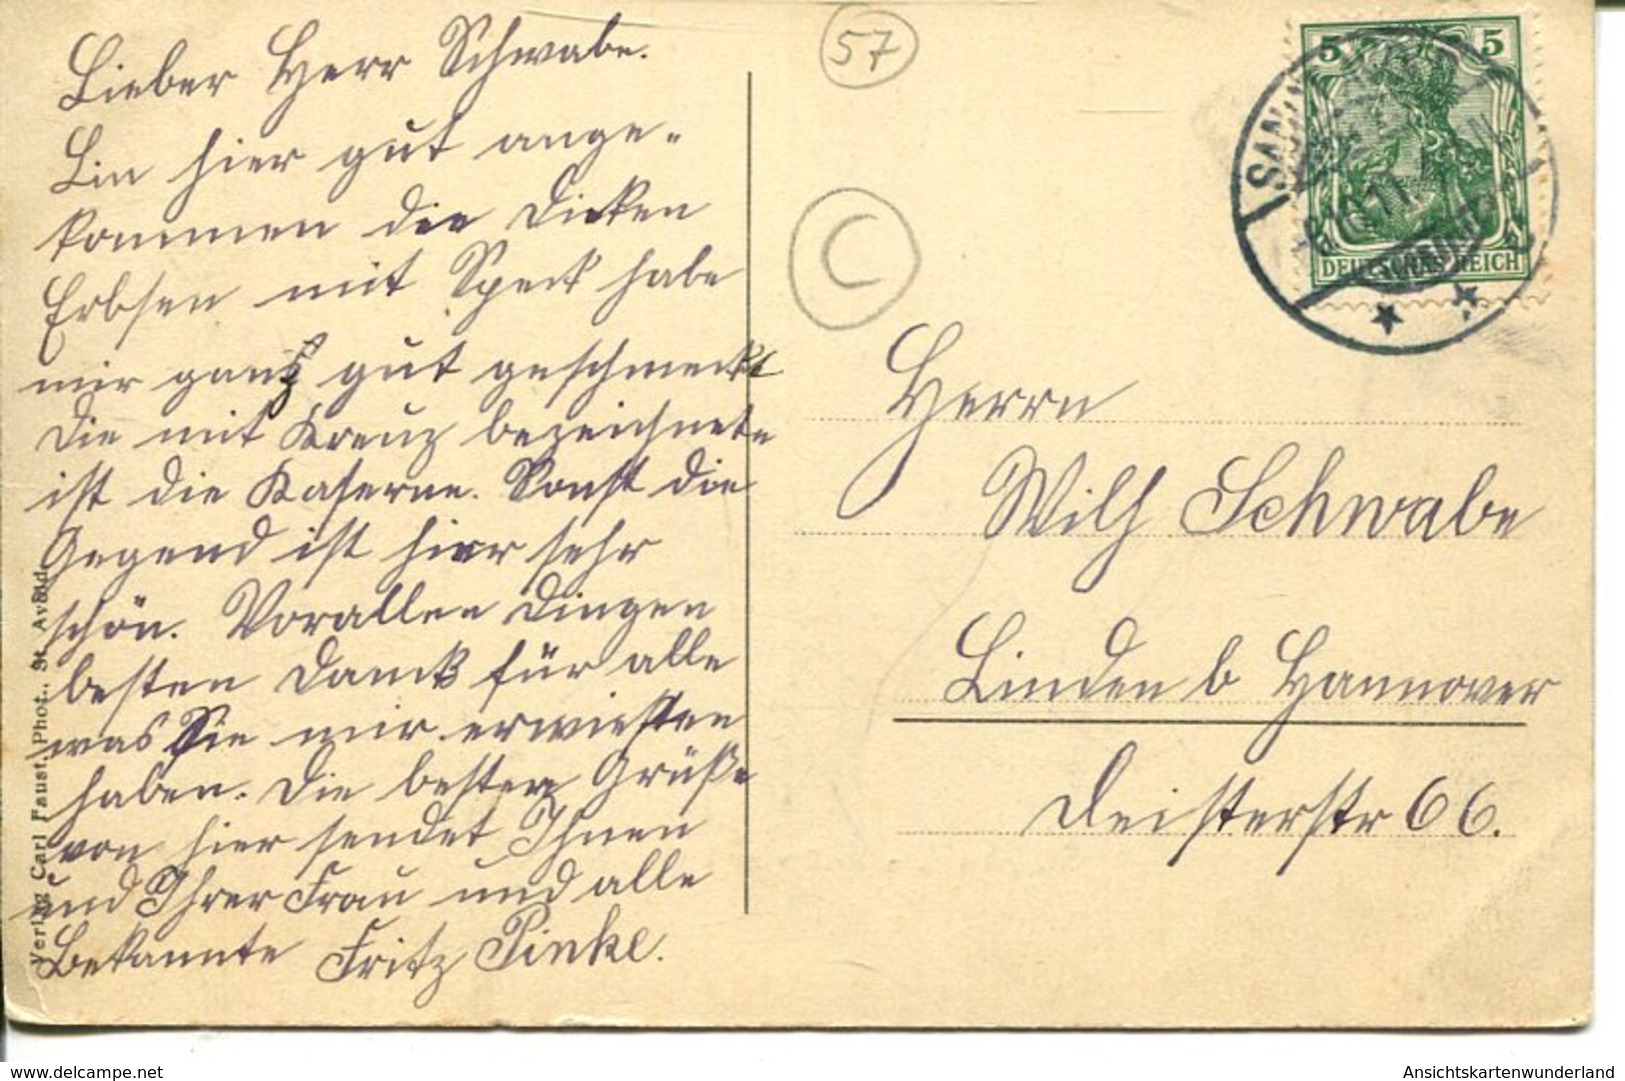 Lieber Herr Schwabe.
Bin hier gut ange-
kommen die Dicken
Erbsen mit Speck habe
mir ganz gut geschmeckt
Die mit Kreuz bezeichnete
ist die Kaserne. Sonst die
Gegend ist hier sehr
schön. Vorallen Dingen
besten Danck für alle
was Sie mir erwiesten
haben. Die besten Grüße
von hier sendet Ihnen
und Ihrer Frau und alle
Bekannte Fritz Pinke.
Verlag Carl Faust, Phot., St. Avold.
57
C
5 5
DEUTSCHES REICH
Herrn
Wilh Schwabe
Linden b Hannover
Deisterstr 66.
www.delcampe.net
Ansichtskartenwunderland